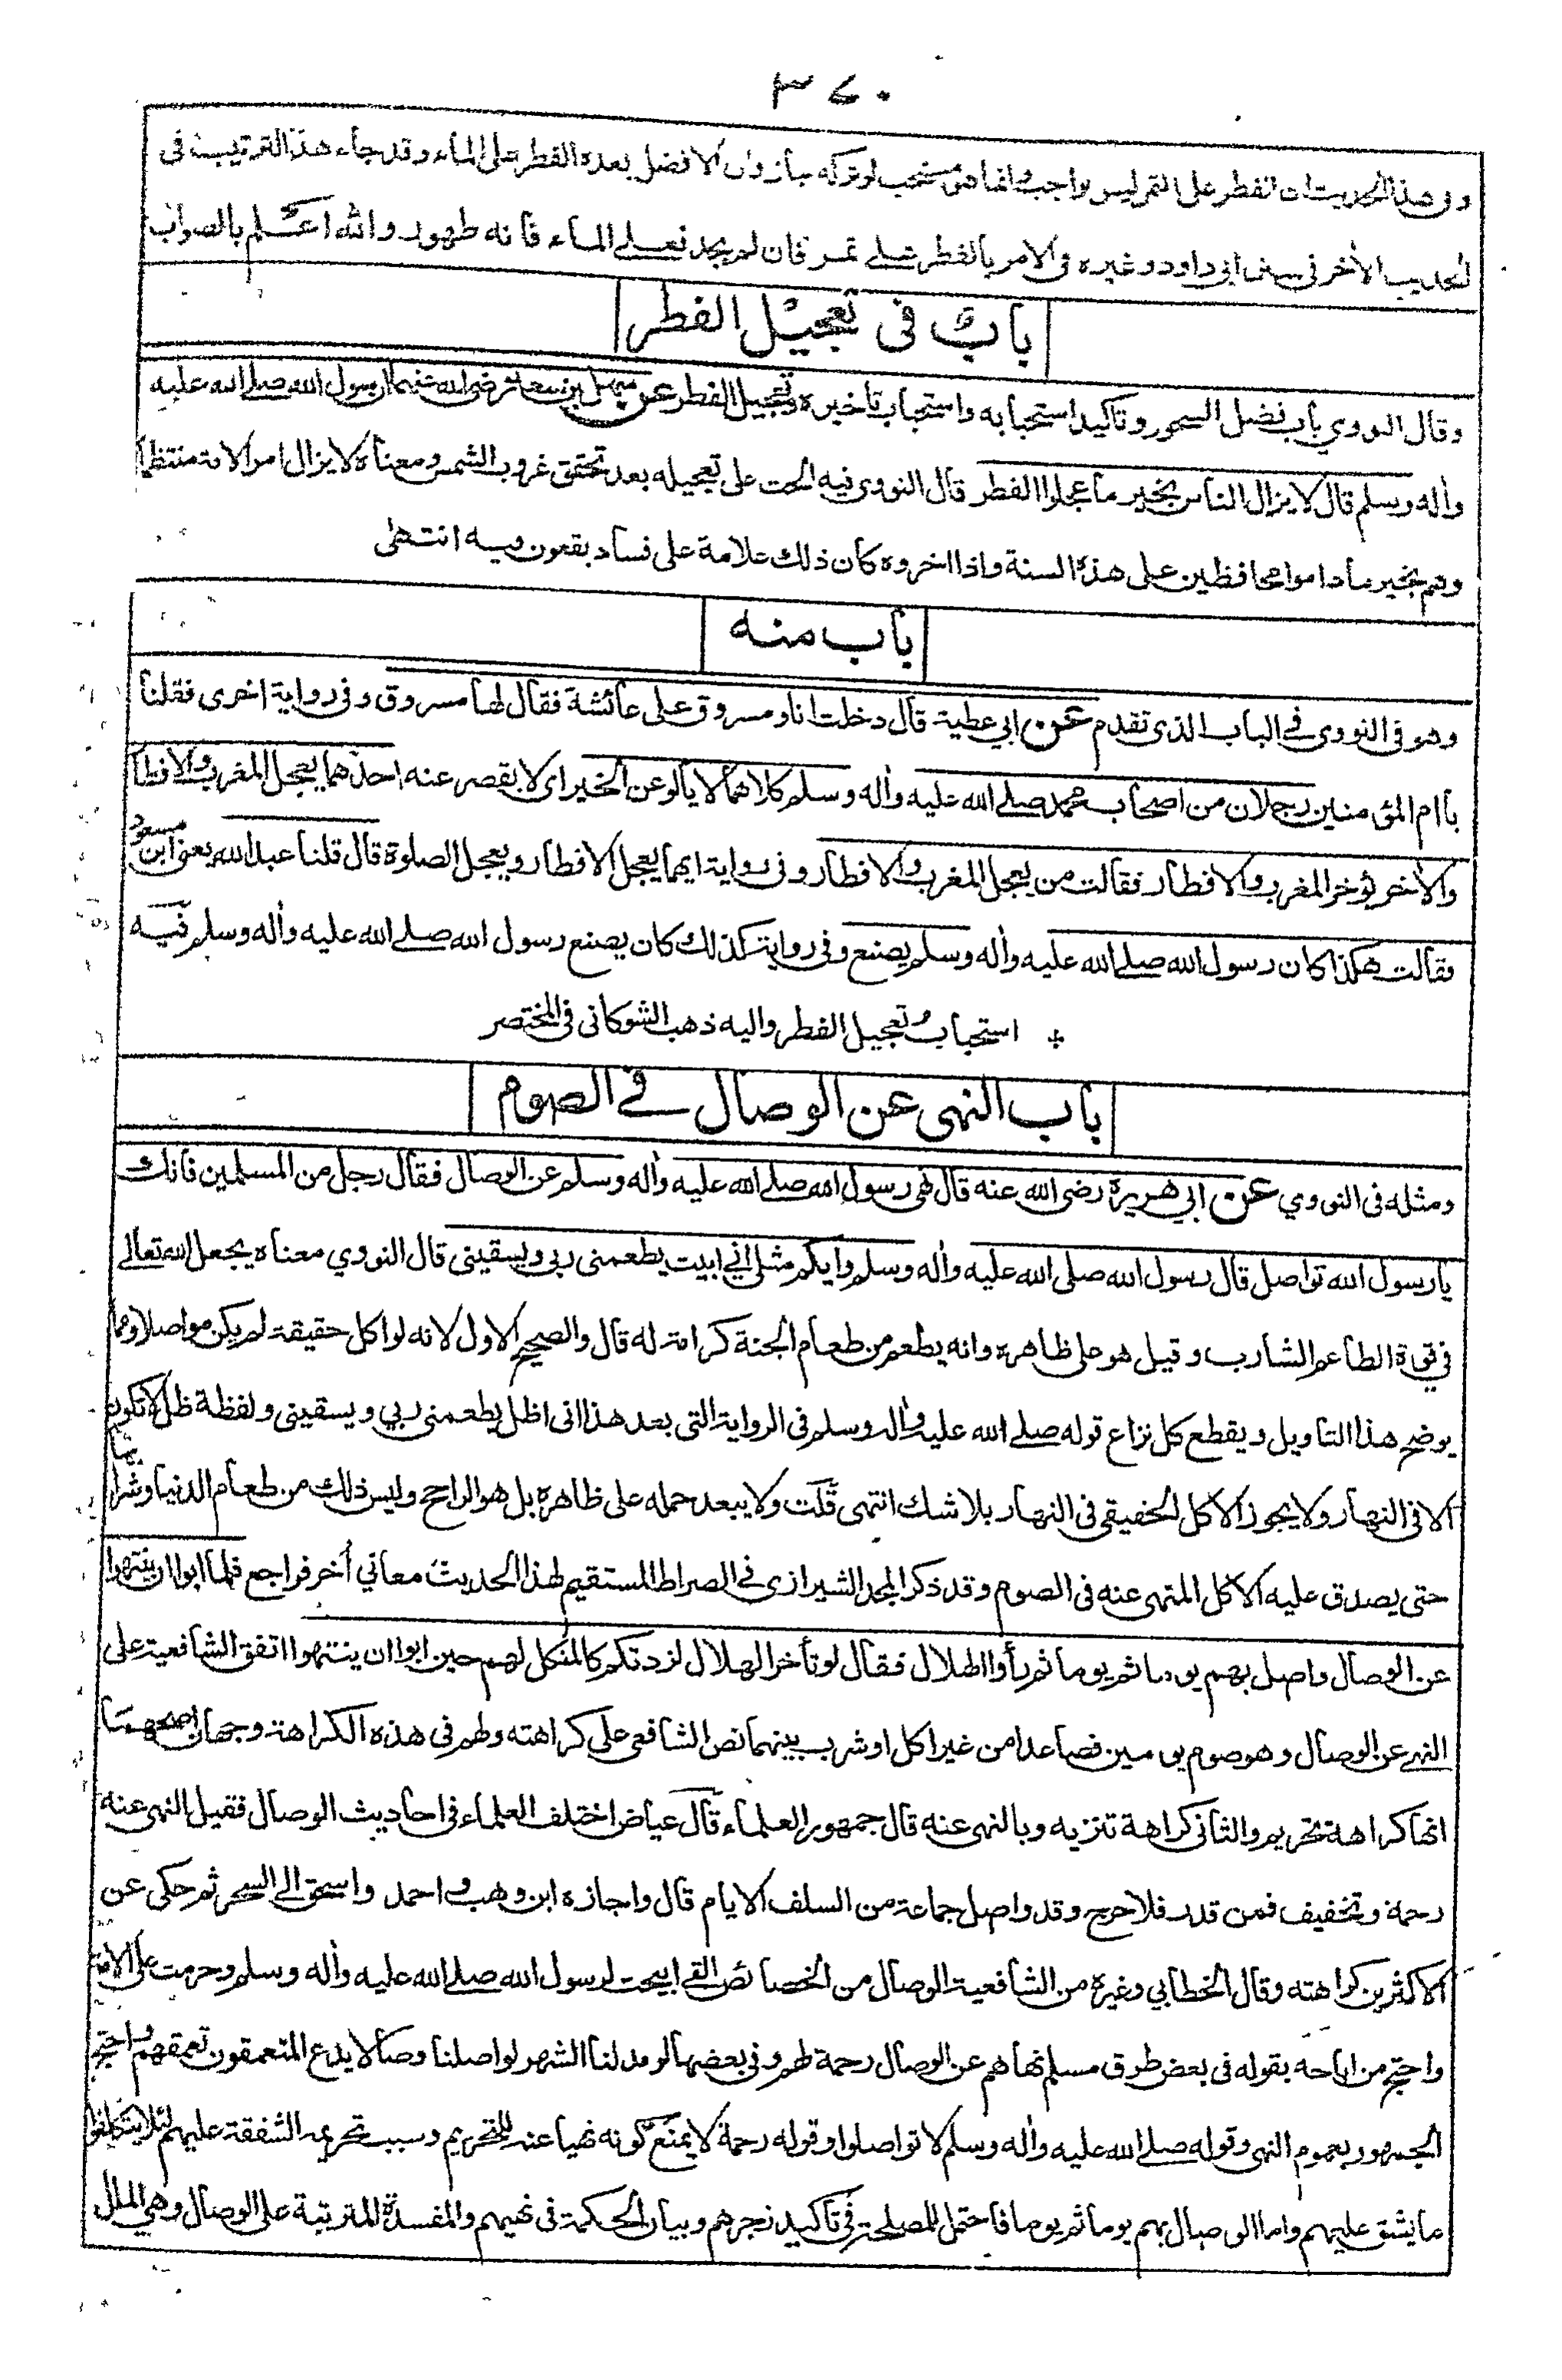 ٣٤٠
وفي هذا الحديث ان الفطر على التمر ليس بواجب وانما هو مستحب لو تركه جاز وان الافضل بعده الفطر على الماء وقد جاء هذا الترتيب في
الحديث الاٰخر في سنن ابي داود وغيره في الامر بالفطر على تمر فان لم يجد فعلى الماء فانه طهور والله اعلم بالصواب
باب في تعجيل الفطر
وقال النووي باب فضل السحور وتاكيد استحبابه واستحباب تاخيره وتعجيل الفطر عن سهل بن سعد رضي الله عنهما ان رسول الله صلى الله عليه
واٰله وسلم قال لا يزال الناس بخير ما عجلوا الفطر قال النووي فيه الحث على تعجيله بعد تحقق غروب الشمس ومعناه لا يزال امر الامة منتظما
وهم بخير ما داموا محافظين على هذه السنة واذا اخروه كان ذلك علامة على فساد يقعون فيه انتهى
باب منه
وهو في النووي في الباب الذي تقدم عن ابي عطية قال دخلت انا ومسروق على عائشة فقال لها مسروق وفي رواية اخرى فقلنا
يا ام المؤمنين رجلان من اصحاب محمد صلى الله عليه واٰله وسلم كلاهما لا يألو عن الخير اي لا يقصر عنه احدهما يعجل المغرب والافطار
والاٰخر يؤخر المغرب والافطار فقالت من يعجل المغرب والافطار وفي رواية ايهما يعجل الافطار ويعجل الصلوة قال قلنا عبد الله يعني ابن مسعود
فقالت هكذا كان رسول الله صلى الله عليه واٰله وسلم يصنع وفي رواية كذلك كان يصنع رسول الله صلى الله عليه واٰله وسلم فيه
استحباب تعجيل الفطر واليه ذهب الشوكاني في المختصر
باب النهي عن الوصال في الصوم
ومثله في النووي عن ابي هريرة رضي الله عنه قال نهى رسول الله صلى الله عليه واٰله وسلم عن الوصال فقال رجل من المسلمين فانك
يا رسول الله تواصل قال رسول الله صلى الله عليه واٰله وسلم وايكم مثلي اني ابيت يطعمني ربي ويسقيني قال النووي معناه يجعل الله تعالى
في قوة الطاعم الشارب وقيل هو على ظاهره وانه يطعم من طعام الجنة كرامة له قال والصحيح الاول لانه لو اكل حقيقة لم يكن مواصلا ومما
يوضح هذا التاويل ويقطع كل نزاع قوله صلى الله عليه واٰله وسلم في الرواية التي بعد هذا اني اظل يطعمني ربي ويسقيني ولفظة ظل لا تكون
الا في النهار ولا يجوز الاكل الحقيقي في النهار بلا شك انتهى قلت ولا يبعد حمله على ظاهره بل هو الراجح وليس ذلك من طعام الدنيا وشرابها
حتى يصدق عليه الاكل المنهى عنه في الصوم وقد ذكر المجد الشيرازي في الصراط المستقيم لهذا الحديث معاني اُخر فراجع فلما ابوا ان ينتهوا
عن الوصال واصل بهم يوما ثم يوما ثم رأوا الهلال فقال لو تأخر الهلال لزدتكم كالمنكل لهم حين ابوا ان ينتهوا اتفق الشافعية على
النهي عن الوصال وهو صوم يومين فصاعدا من غير اكل او شرب بينهما نص الشافعي على كراهته ولهم في هذه الكراهة وجهان اصحهما
انها كراهة تحريم والثاني كراهة تنزيه وبالنهي عنه قال جمهور العلماء قال عياض اختلف العلماء في احاديث الوصال فقيل النهي عنه
رحمة وتخفيف فمن قدر فلا حرج وقد واصل جماعة من السلف الايام قال واجازه ابن وهب واحمد واسحق الى السحر ثم حكى عن
الاكثرين كراهته وقال الخطابي وغيره من الشافعية الوصال من الخصائص التي ابيحت لرسول الله صلى الله عليه واٰله وسلم وحرمت على الامة
واحتج من اباحه بقوله في بعض طرق مسلم نهاهم عن الوصال رحمة لهم وفي بعضها لو مد لنا الشهر لواصلنا وصالا يدع المتعمقون تعمقهم واحتج
الجمهور بعموم النهي وقوله صلى الله عليه واٰله وسلم لا تواصلوا وقوله رحمة لا يمنع كونه نهيا عنه للتحريم وسبب تحريمه الشفقة عليهم لئلا يتكلفوا
ما يشق عليهم واما الوصال بهم يوما ثم يوما فاحتمل للمصلحة في تاكيد زجرهم وبيان الحكمة في نهيهم والمفسدة المترتبة على الوصال وهي الملل